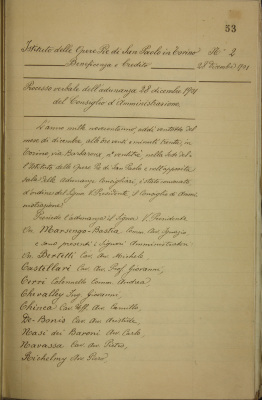 53
Istituto delle Opere Pie di San Paolo in Torino N.° 2
Beneficenza e Credito 28 Dicembre 1901
Processo verbale dell'adunanza 28 dicembre 1901
del Consiglio d'Amministrazione
L'anno mille novecentouno, addì ventotto del
mese di dicembre alle ore e minuti trenta, in
Torino, via Barbaroux, e nella sede del
l'Istituto delle Opere Pie di San Paolo e nell'apposita
sala delle adunanze Consigliari, è stato convocato
d'ordine del Signor V. Presidente, il Consiglio di Ammi
nistrazione.
Presiede l'adunanza il Signor V. Presidente
On. Marsengo-Bastia Comm. Avv. Ignazio
e sono presenti i Signori Amministratori:
On. Bertetti Cav. Avv. Michele
Castellari Cav. Avv. Prof. Giovanni,
Cerri Colonnello Comm. Andrea
Chevalley Ing. Giovanni,
Chinea Cav. Uff. Avv. Camillo,
De-Bonis Cav. Avv. Aristide,
Masi dei Baroni Avv. Carlo,
Ravassa Cav. Avv. Pietro,
Richelmy Avv. Piero,